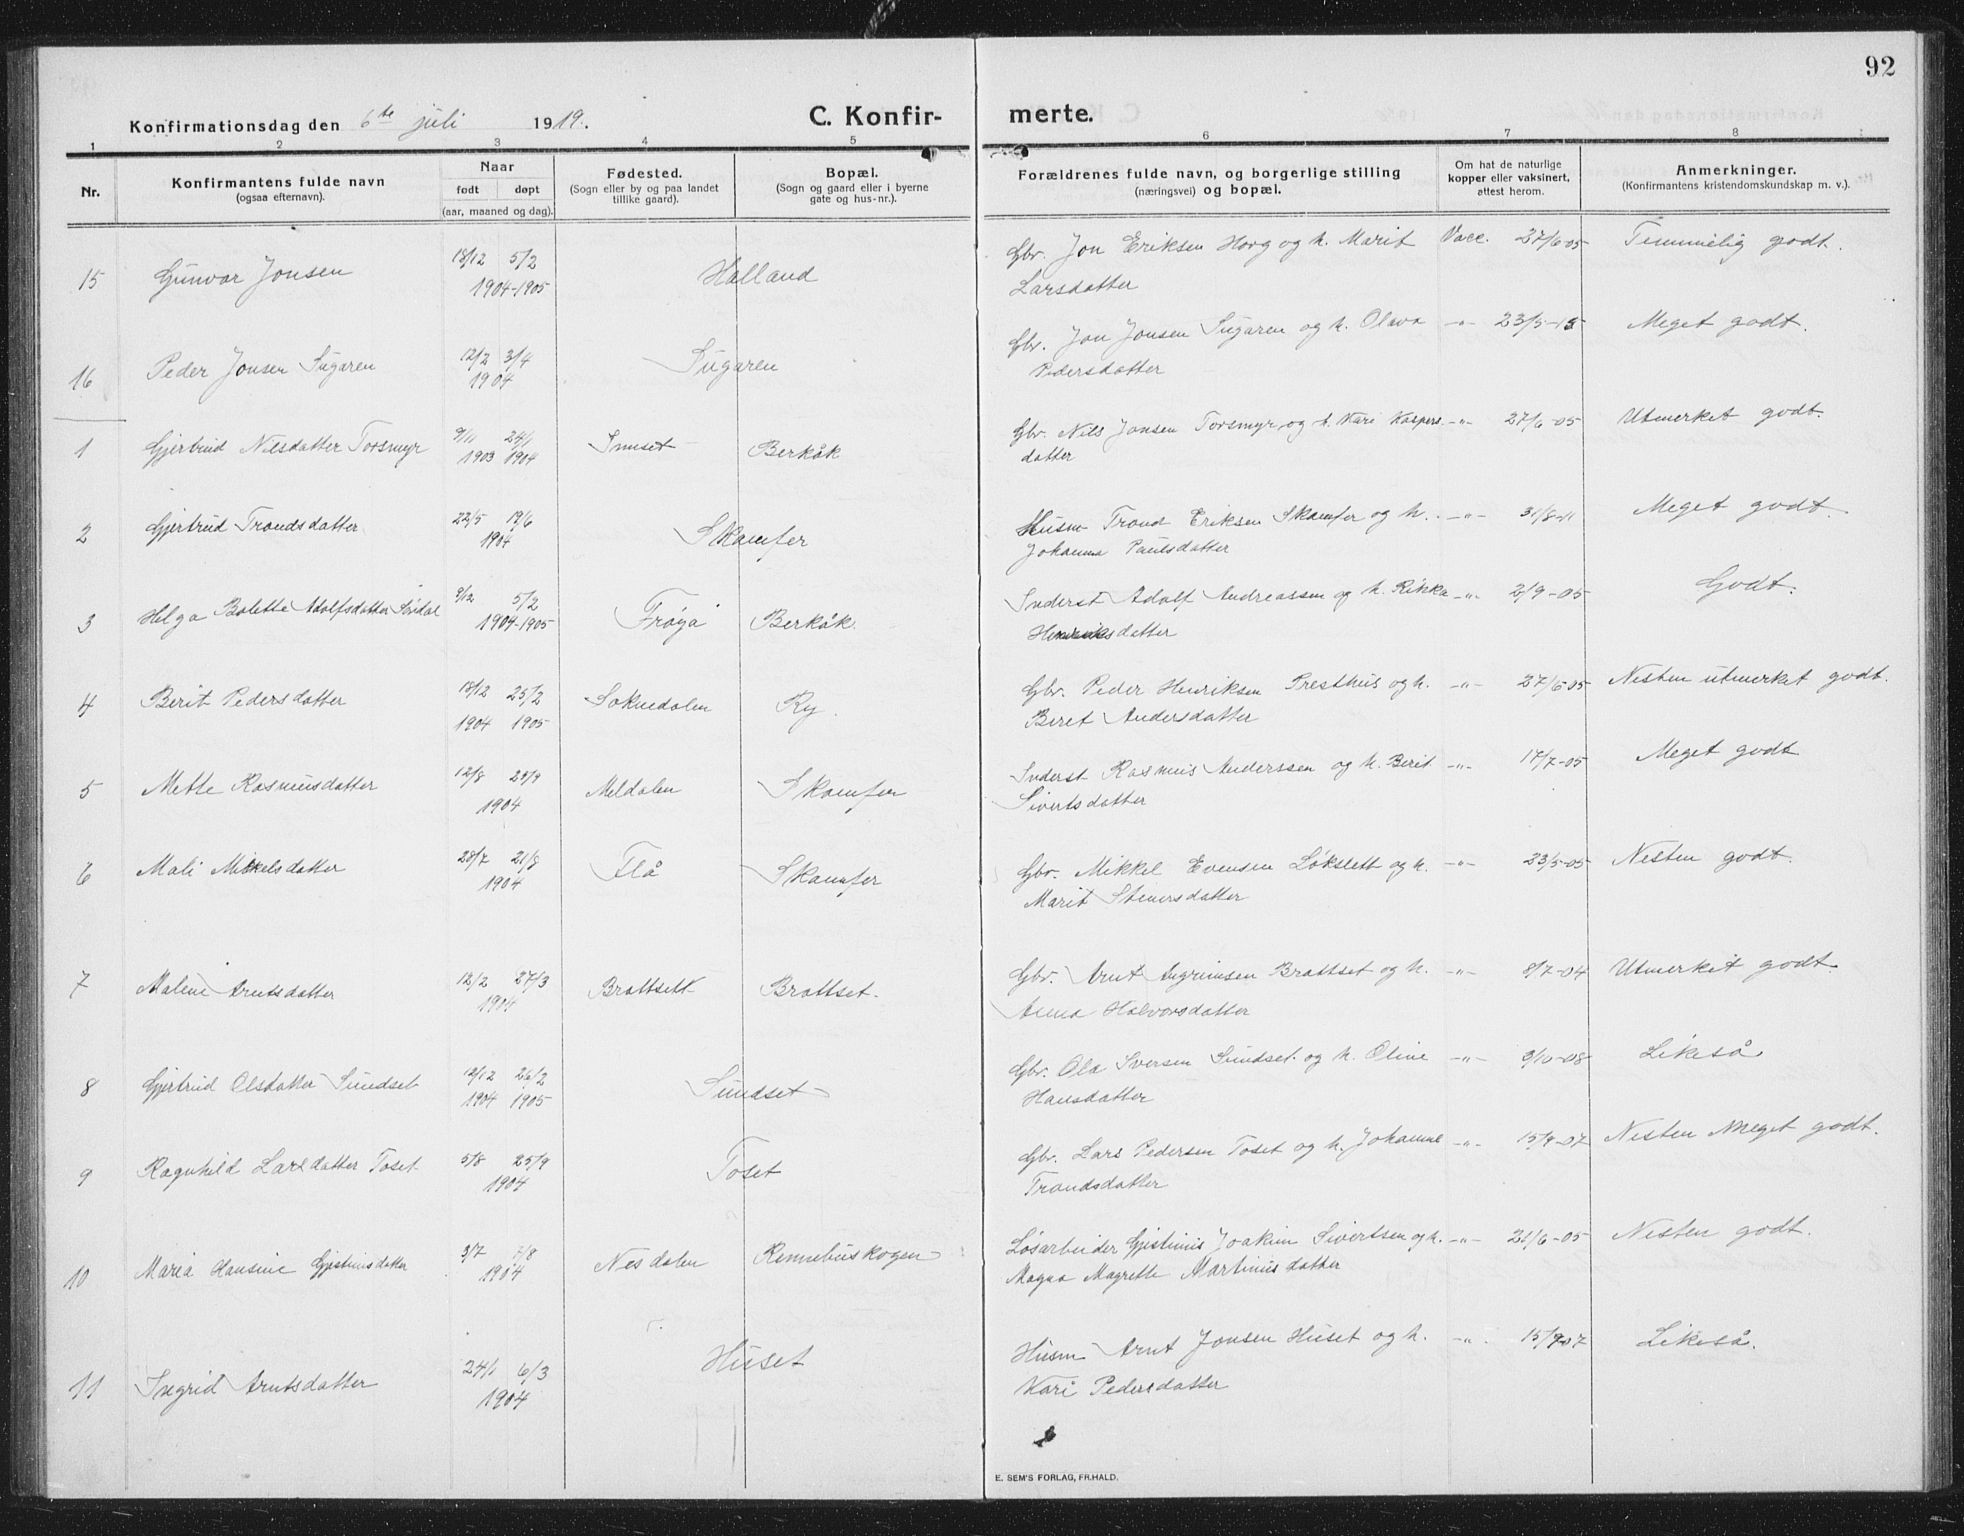 92
Konfirmationsdag den 6te juli 1919.
C. Konfirmerte.
1 2 3 4 5 6 7 8
Nr.
Konfirmantens fulde navn
(ogsaa efternavn).
Naar
født døpt
(aar, maaned og dag).
Fødested.
(Sogn eller by og paa landet
tillike gaard).
Bopæl.
(Sogn og gaard eller i byerne
gate og hus-nr.).
Forældrenes fulde navn, og borgerlige stilling
(næringsvei) og bopæl.
Om hat de naturlige
kopper eller vaksinert,
attest herom.
Anmerkninger.
(Konfirmantens kristendomskundskap m. v.).
15 Gunvor Jonsen 18/12 5/2 1904-1905 Halland Gbr. Jon Eriksen Horg og h. Marit Vacc. 27/6-05 Temmelig godt.
Larsdatter
16 Peder Jonsen Sugaren 12/2 3/4 1904 Sugaren Gbr. Jon Jonsen Sugaren og h. Olava -"- 23/5-15 Meget godt.
Pedersdatter
1 Gjertrud Nilsdatter Torsmyr 9/11 24/1 1903 1904 Innset Berkåk Gbr. Nils Jonsen Torsmyr og h. Kari Kaspers- -"- 27/6-05 Utmerket godt.
datter
2 Gjertrud Trondsdatter 22/5 19/6 1904 Skamfer Husm Trond Eriksen Skamfer og h. -"- 31/8-11 Meget godt.
Johanna Paulsdatter
3 Helga Bolette Adolfsdatter 9/12 5/2 1904-1905 Frøya Berkåk. Inderst Adolf Andreassen og h. Rikka -"- 2/9-05 Godt.
Henriksdatter
4 Berit Pedersdatter 18/12 25/2 1904 1905 Soknedalen Ry. Gbr. Peder Henriksen Presthus og h. -"- 27/6-05 Nesten utmerket godt.
Beret Andersdatter
5 Mette Rasmusdatter 12/8 25/9 1904 Meldalen Skamfer Inderst Rasmus Anderssen og h. Berit -"- 17/7-05 Meget godt
Sivertsdatter
6 Mali Mikkelsdatter 28/7 21/8 1904 Flå Skamfer Gbr. Mikkel Evensen Løkslett og h. -"- 23/5-05 Nesten godt.
Marit Stenersdatter
7 Malene Arntsdatter 12/2 27/3 1904 Brattsett Brattset. Gbr. Arnt Ingrimsen Brattset og h. -"- 8/7-04 Utmerket godt
Anna Halvorsdatter
8 Gjertrud Olsdatter Sundset 12/12 26/2 1904 1905 Sundset Gbr. Ola Iversen Sundset. og h. Oline -"- 9/10-08 Likeså
Hansdatter
9 Ragnhild Larsdatter Toset 5/8 25/9 1904 Toset Gbr. Lars Pedersen Toset og h. Johanne -"- 15/9-07 Nesten meget godt.
Trondsdatter
10 Maria Hansine Gjistinusdatter 3/7 7/8 1904 Nesdalen Rennebuskogen Løsarbeider Gjistinus Joakim Sivertsen og h. -"- 21/6-05 Nesten godt.
Magna Magrette Martinusdatter
11 Ingrid Arntsdatter 24/1 6/3 1904 Huset Husm Arnt Jonsen Huset og h. -"- 15/9-07 Likeså.
Kari Pedersdatter
E. SEM'S FORLAG, FR.HALD.